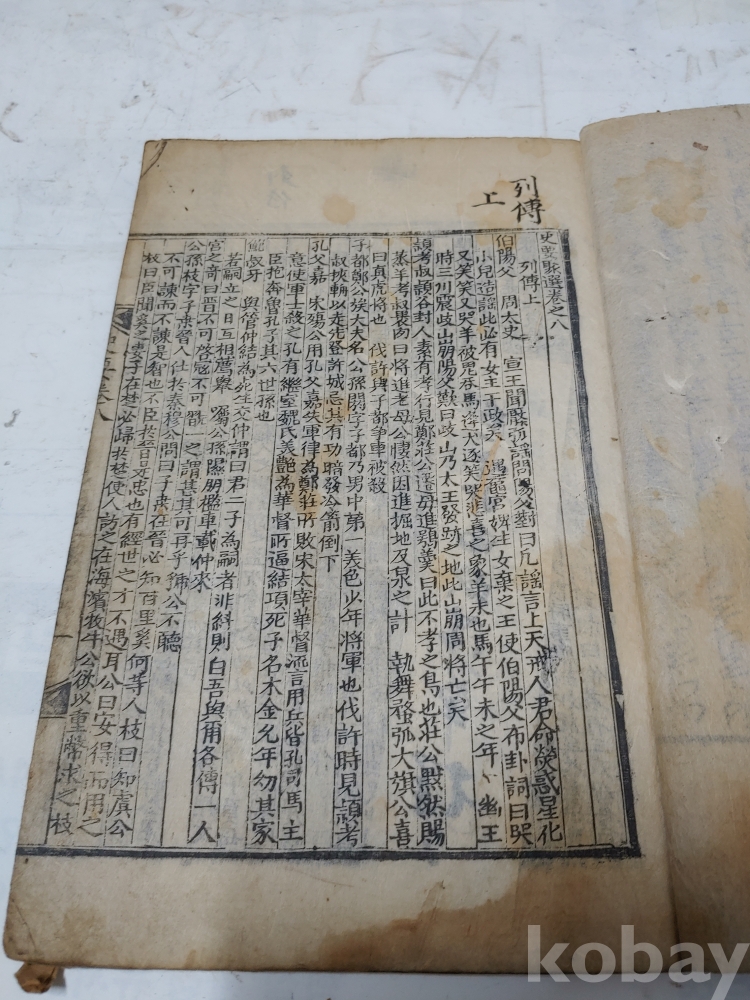 列傳
上
史要聚選卷之八
列傳上
伯陽父 周太史 宣王聞檿弧謠問陽父對曰凡謠言上天戒人君命熒惑星化
小兒造謠此必有女主干政矣 遇龍漦婢生女棄之王使伯陽父布卦詞曰哭
又笑笑又哭羊被鬼吞馬逢犬逐笑哭悲喜之象羊未也馬午午未之年 幽王
時三川震歧山崩陽父歎曰歧山乃太王發跡之地此山崩周將亡矣
潁考叔潁谷封人素有孝行見鄭莊公遷母進鶚羹曰此不孝之鳥也莊公黙然賜
蒸羊考叔裹肉曰將進老母公悽然因進掘地及泉之計 執舞蝥弧大旗公喜
曰真虎將也 伐許與子都爭車被殺
子都鄭公族大夫名公孫閼字子都乃男中第一美色少年將軍也伐許時見潁考
叔挾輈以走先登許城忌其有功暗發冷箭倒下
孔父嘉 宋殤公用孔父嘉失軍律為鄭莊所敗宋太宰華督㳅言用兵皆孔司馬主
意使軍士殺之孔有繼室魏氏美艶為華督所逼結項死子名木金允年幼其家
臣抱奔魯孔子其六世孫也
鮑叔牙 與管仲結為死生交仲謂曰君二子為嗣者非糾則白吾與甬各傳一人
若嗣立之日互相薦擧 囑公孫隰朋檻車載仲來
宮之奇曰晋不可啓寇不可翫 之謂甚其可再乎
公孫枝字子桑晉人仕於秦穆公問曰子桑在晉必知百里奚何等人枝曰知虞公
不可諫而不諫是智也不臣於晉是忠也有經世之才不遇耳公曰安得而用之
枝曰臣聞奚妻子在楚必歸於楚使人訪之在海濱牧牛公欲以重幣求之枝